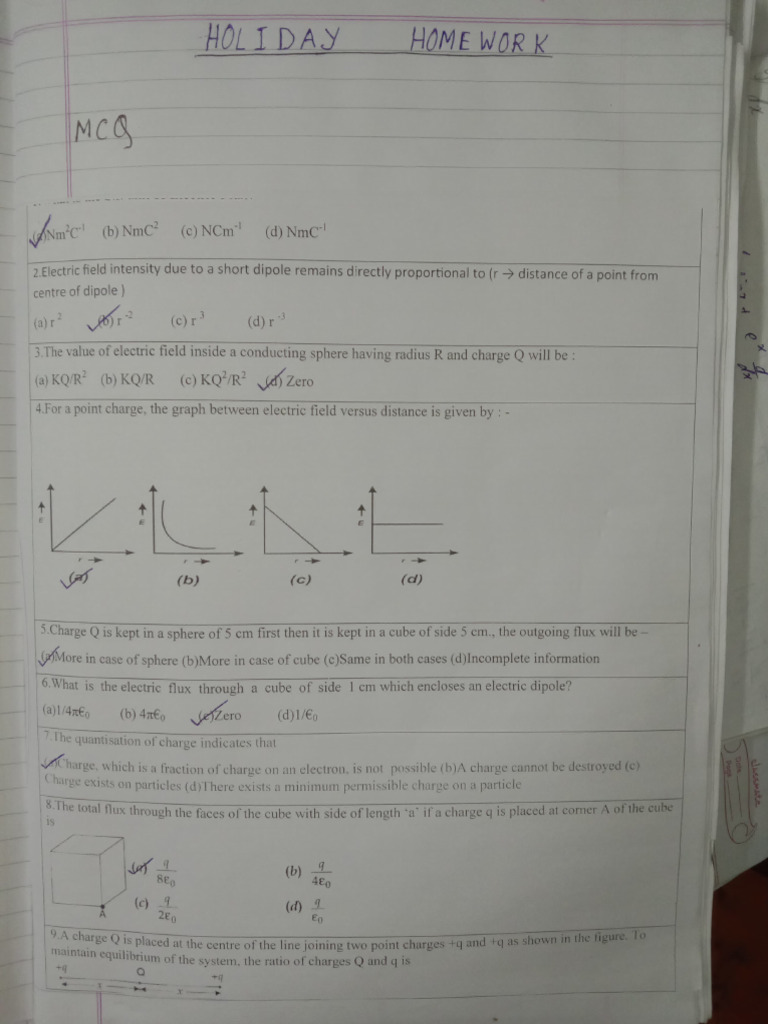 HOLIDAY HOMEWORK
MCQ
(a)Nm²C⁻¹ (b) NmC² (c) NCm⁻¹ (d) NmC⁻¹
2.Electric field intensity due to a short dipole remains directly proportional to (r → distance of a point from
centre of dipole )
(a) r ² (b) r ⁻² (c) r ³ (d) r ⁻³
3.The value of electric field inside a conducting sphere having radius R and charge Q will be :
(a) KQ/R² (b) KQ/R (c) KQ²/R² (d) Zero
4.For a point charge, the graph between electric field versus distance is given by : -
E E E E
r r r r
(a) (b) (c) (d)
5.Charge Q is kept in a sphere of 5 cm first then it is kept in a cube of side 5 cm., the outgoing flux will be –
(a)More in case of sphere (b)More in case of cube (c)Same in both cases (d)Incomplete information
6.What is the electric flux through a cube of side 1 cm which encloses an electric dipole?
(a)1/4πЄ₀ (b) 4πЄ₀ (c)Zero (d)1/Є₀
7.The quantisation of charge indicates that
(a)Charge, which is a fraction of charge on an electron, is not possible (b)A charge cannot be destroyed (c)
Charge exists on particles (d)There exists a minimum permissible charge on a particle
8.The total flux through the faces of the cube with side of length 'a' if a charge q is placed at corner A of the cube
is
(a) q/8ε₀ (b) q/4ε₀
(c) q/2ε₀ (d) q/ε₀
A
9.A charge Q is placed at the centre of the line joining two point charges +q and +q as shown in the figure. To
maintain equilibrium of the system, the ratio of charges Q and q is
+q Q +q
x x